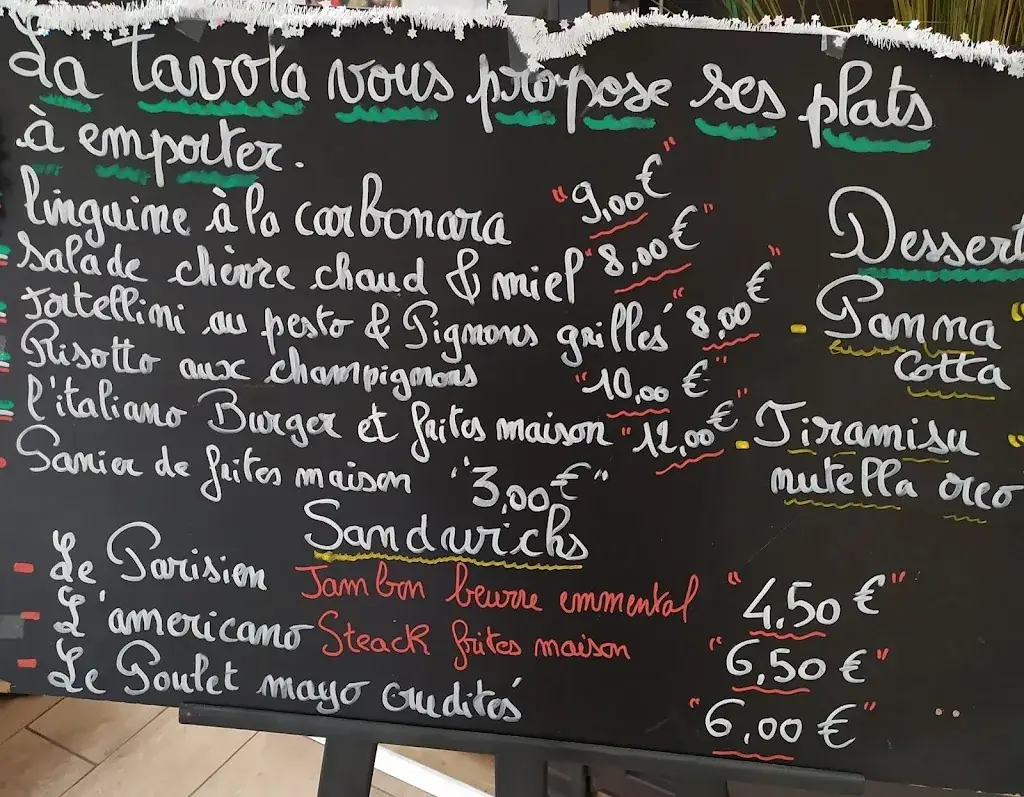 La Tavola vous propose ses plats
à emporter.
linguine à la carbonara "9,00€"
Salade chèvre chaud & miel "8,00€"
Tortellini au pesto & Pignons grillés "8,00€"
Risotto aux champignons "10,00€"
l'italiano Burger et frites maison "12,00€"
Panier de frites maison "3,00€"
Sandwichs
- Le Parisien Jambon beurre emmental "4,50€"
- L'americano Steack frites maison "6,50€"
- Le Poulet mayo crudités "6,00€"
Dessert
- Panna "
Cotta
- Tiramisu "
nutella oreo